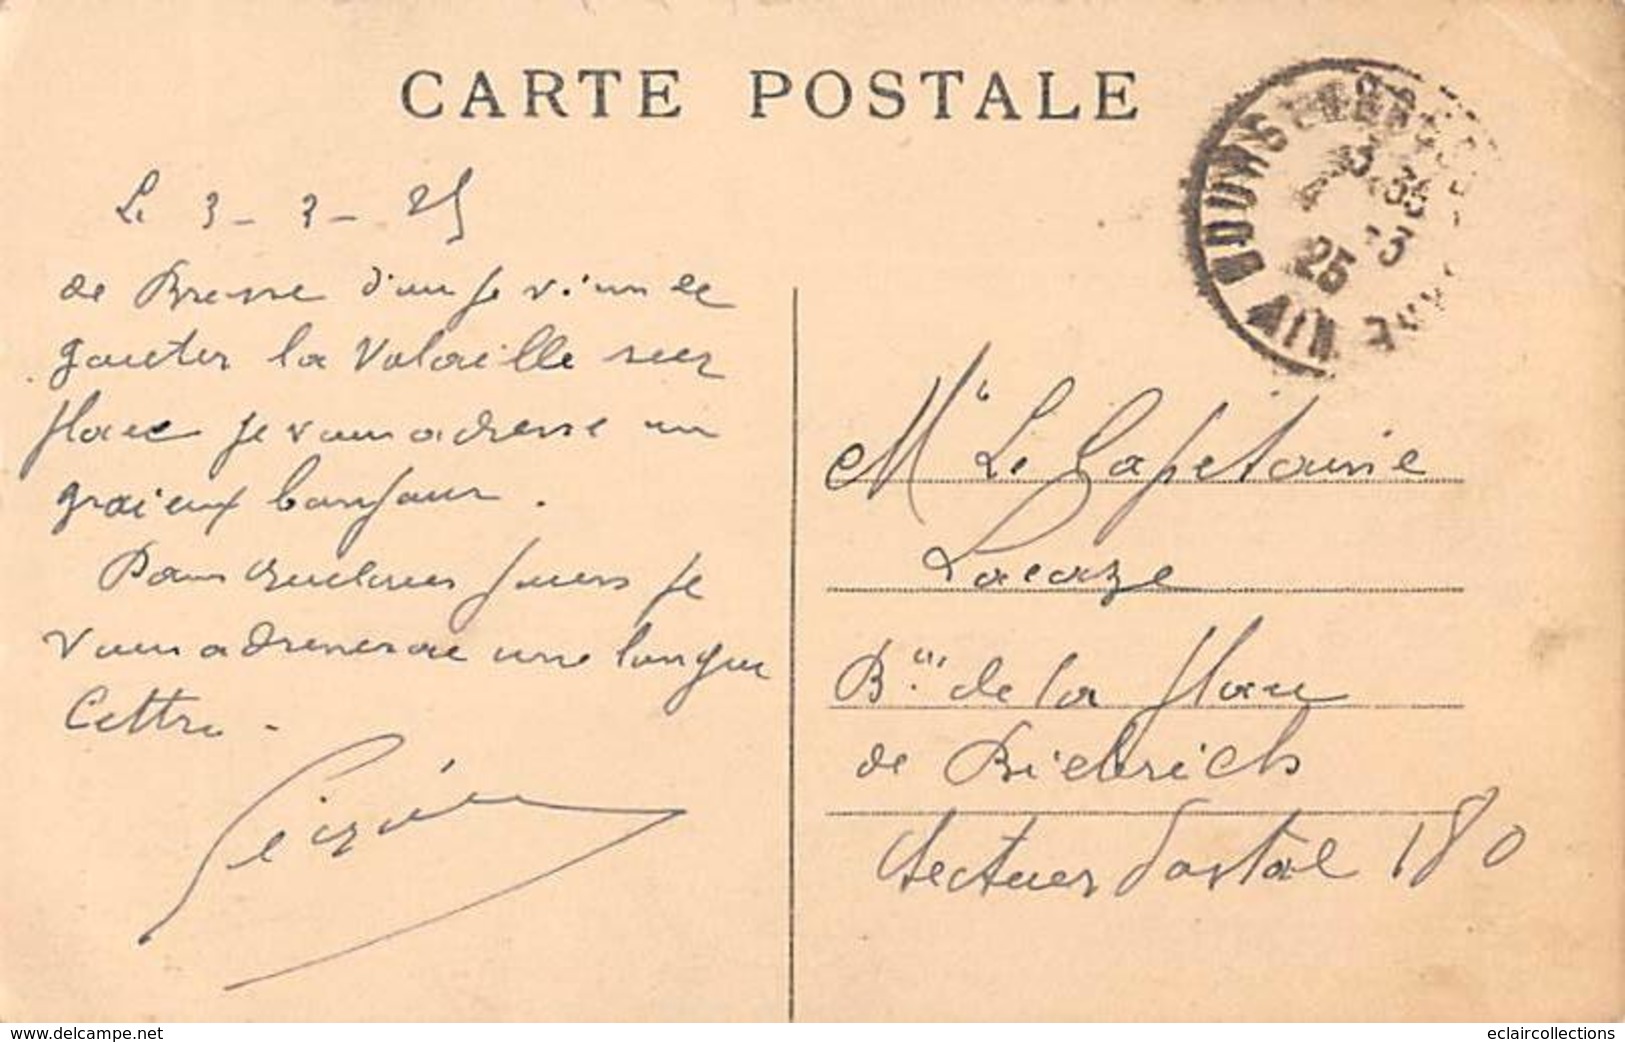 CARTE POSTALE
Le 3 - 3 - 25
de Bresse d'ou je viens de
gouter la Volaille sur
place je vous adresse un
graieux bonjour.
Dans quelques jours je
vous adresserai une longue
Lettre.
Mr Le Capitaine
Lacaze
Bau de la place
de Biebrich
Secteur Postal 180
BOURG
AIN
4 -3
25
www.delcampe.net
eclaircollections